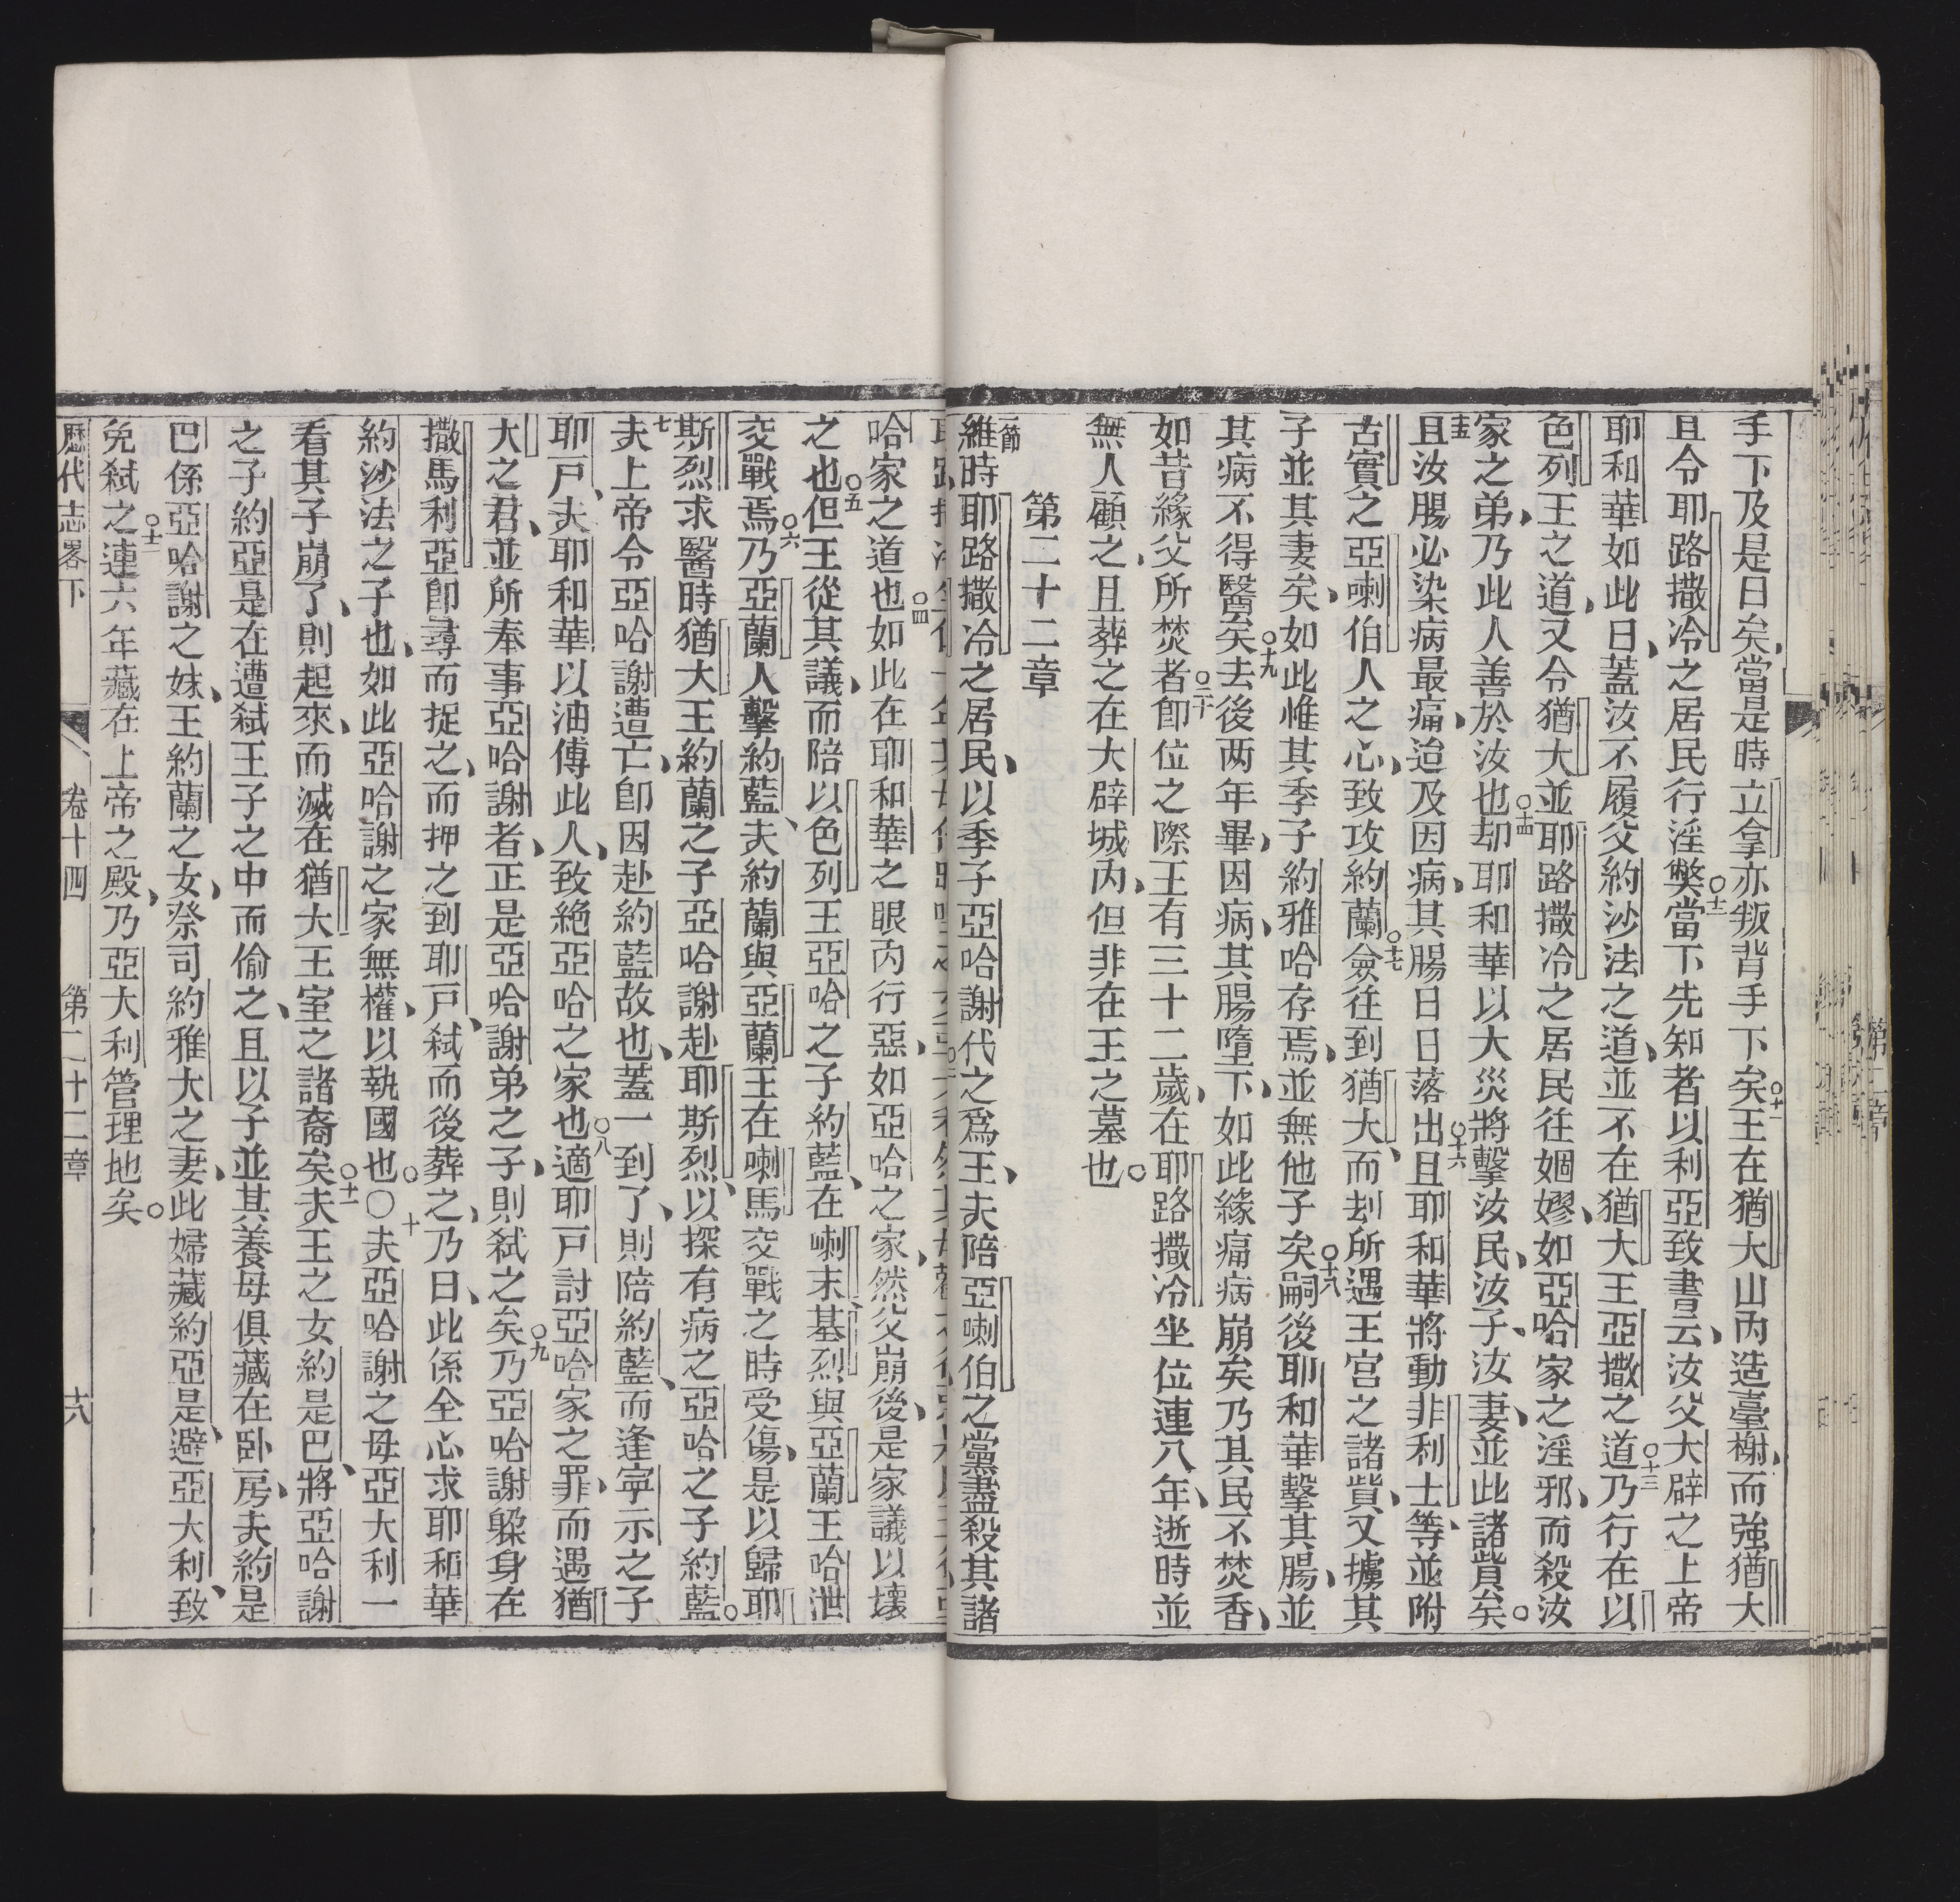 手下及是日矣、當是時立拿亦叛背手下矣○十一王在猶大山內造臺榭、而強猶大
且令耶路撒冷之居民行淫獘○十二當下先知者以利亞致書云、汝父大辟之上帝
耶和華如此曰、蓋汝不履父約沙法之道、並不在猶大王亞撒之道○十三乃行在以
色列王之道、又令猶大並耶路撒冷之居民往婟嫪、如亞哈家之淫邪、而殺汝
家之弟、乃此人善於汝也○十四却耶和華以大災將擊汝民、汝子、汝妻、並此諸貲矣。
十五且汝腸必染病最痛、迨及因病、其腸日日落出○十六且耶和華將動非利士等、並附
古實之亞喇伯人之心、致攻約蘭○十七僉往到猶大、而刦所遇王宮之諸貲、又擄其
子並其妻矣、如此惟其季子約雅哈存焉、並無他子矣○十八嗣後耶和華擊其腸、並
其病不得醫矣○十九去後两年畢、因病、其腸墮下、如此緣痛病崩矣乃其民不焚香、
如昔緣父所焚者○二十卽位之際、王有三十二歲、在耶路撒冷坐位連八年、逝時並
無人顧之、且葬之在大辟城內、但非在王之墓也。
第二十二章
一節維時耶路撒冷之居民、以季子亞哈謝代之爲王、夫陪亞喇伯之黨盡殺其諸
哈家之道也○四如此在耶和華之眼內行惡、如亞哈之家、然父崩後、是家議以壊
之也○五但王從其議、而陪以色列王亞哈之子約藍、在喇末基烈與亞蘭王哈泄
交戰焉○六乃亞蘭人擊約藍、夫約蘭與亞蘭王在喇馬交戰之時受傷、是以歸耶
斯烈求醫時猶大王約蘭之子亞哈謝赴耶斯烈、以探有病之亞哈之子約藍。
七夫上帝令亞哈謝遭亡、卽因赴約藍故也、蓋一到了、則陪約藍、而逢寕示之子
耶戸、夫耶和華以油傅此人、致絕亞哈之家也○八適耶戸討亞哈家之罪、而遇猶
大之君、並所奉事亞哈謝者、正是亞哈謝弟之子、則弒之矣○九乃亞哈謝躱身在
撒馬利亞卽尋而捉之、而押之到耶戸、弒而後葬之、乃曰、此係全心求耶和華
約沙法之子也、如此亞哈謝之家無權、以執國也。○十夫亞哈謝之母亞大利一
看其子崩了、則起來、而滅在猶大王室之諸裔矣○十一夫王之女約是巴、將亞哈謝
之子約亞是在遭弒王子之中而偷之、且以子並其養母俱藏在卧房、夫約是
巴係亞哈謝之妹、王約蘭之女、祭司約雅大之妻、此婦藏約亞是、避亞大利、致
免弒之○十二連六年藏在上帝之殿、乃亞大利管理地矣。
歷代志畧下 卷十四 第二十二章 十八